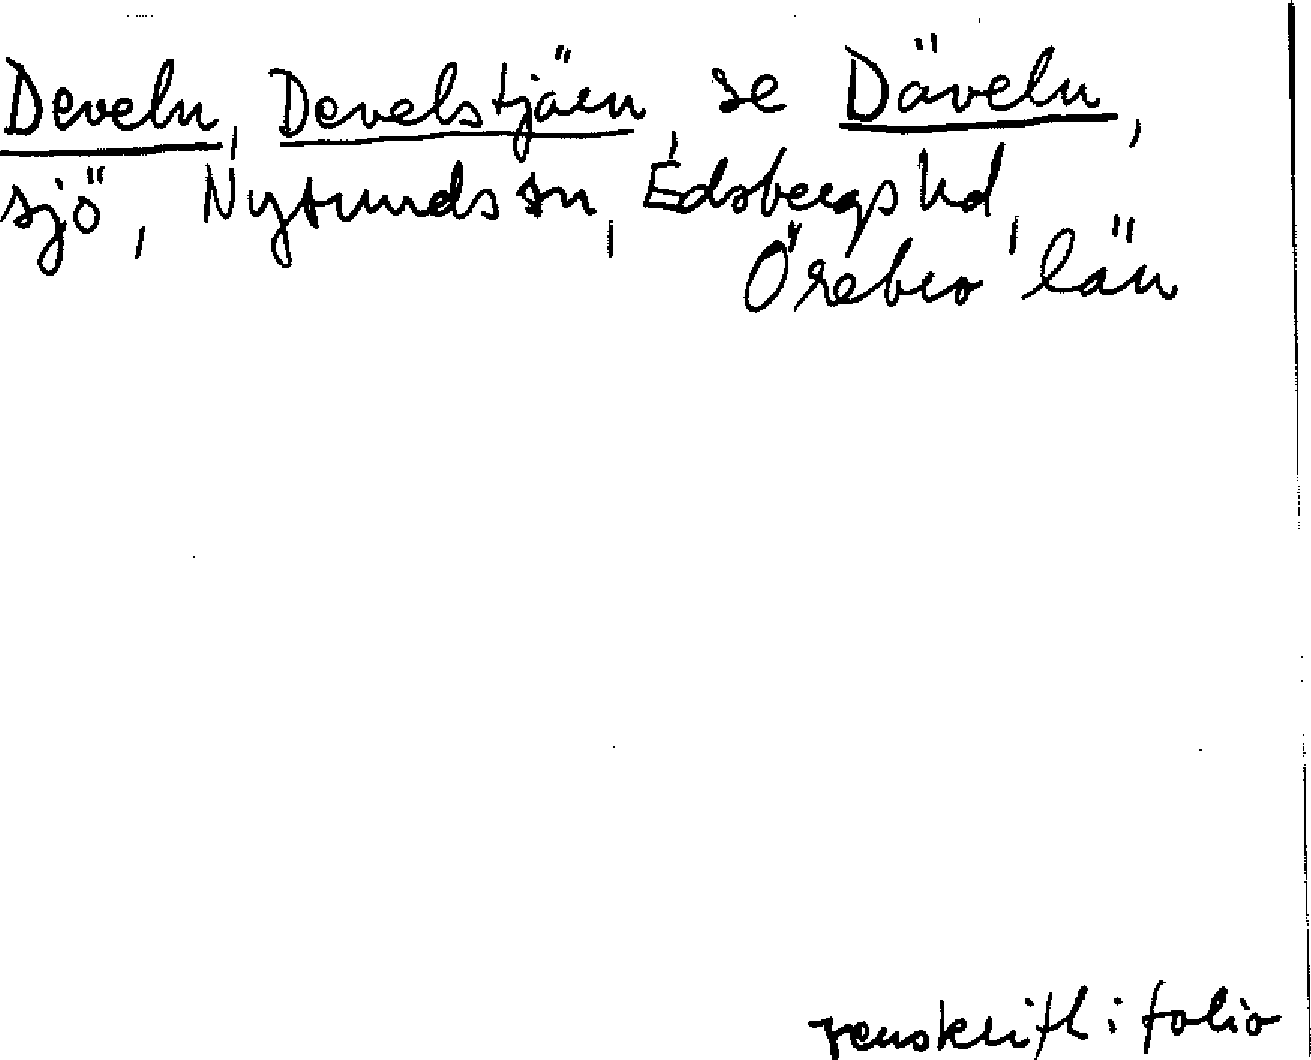 Develn, Develstjärn, se Däveln,
sjö, Nysunds sn, Edsbergs hd,
Örebro län
renskrift i folio